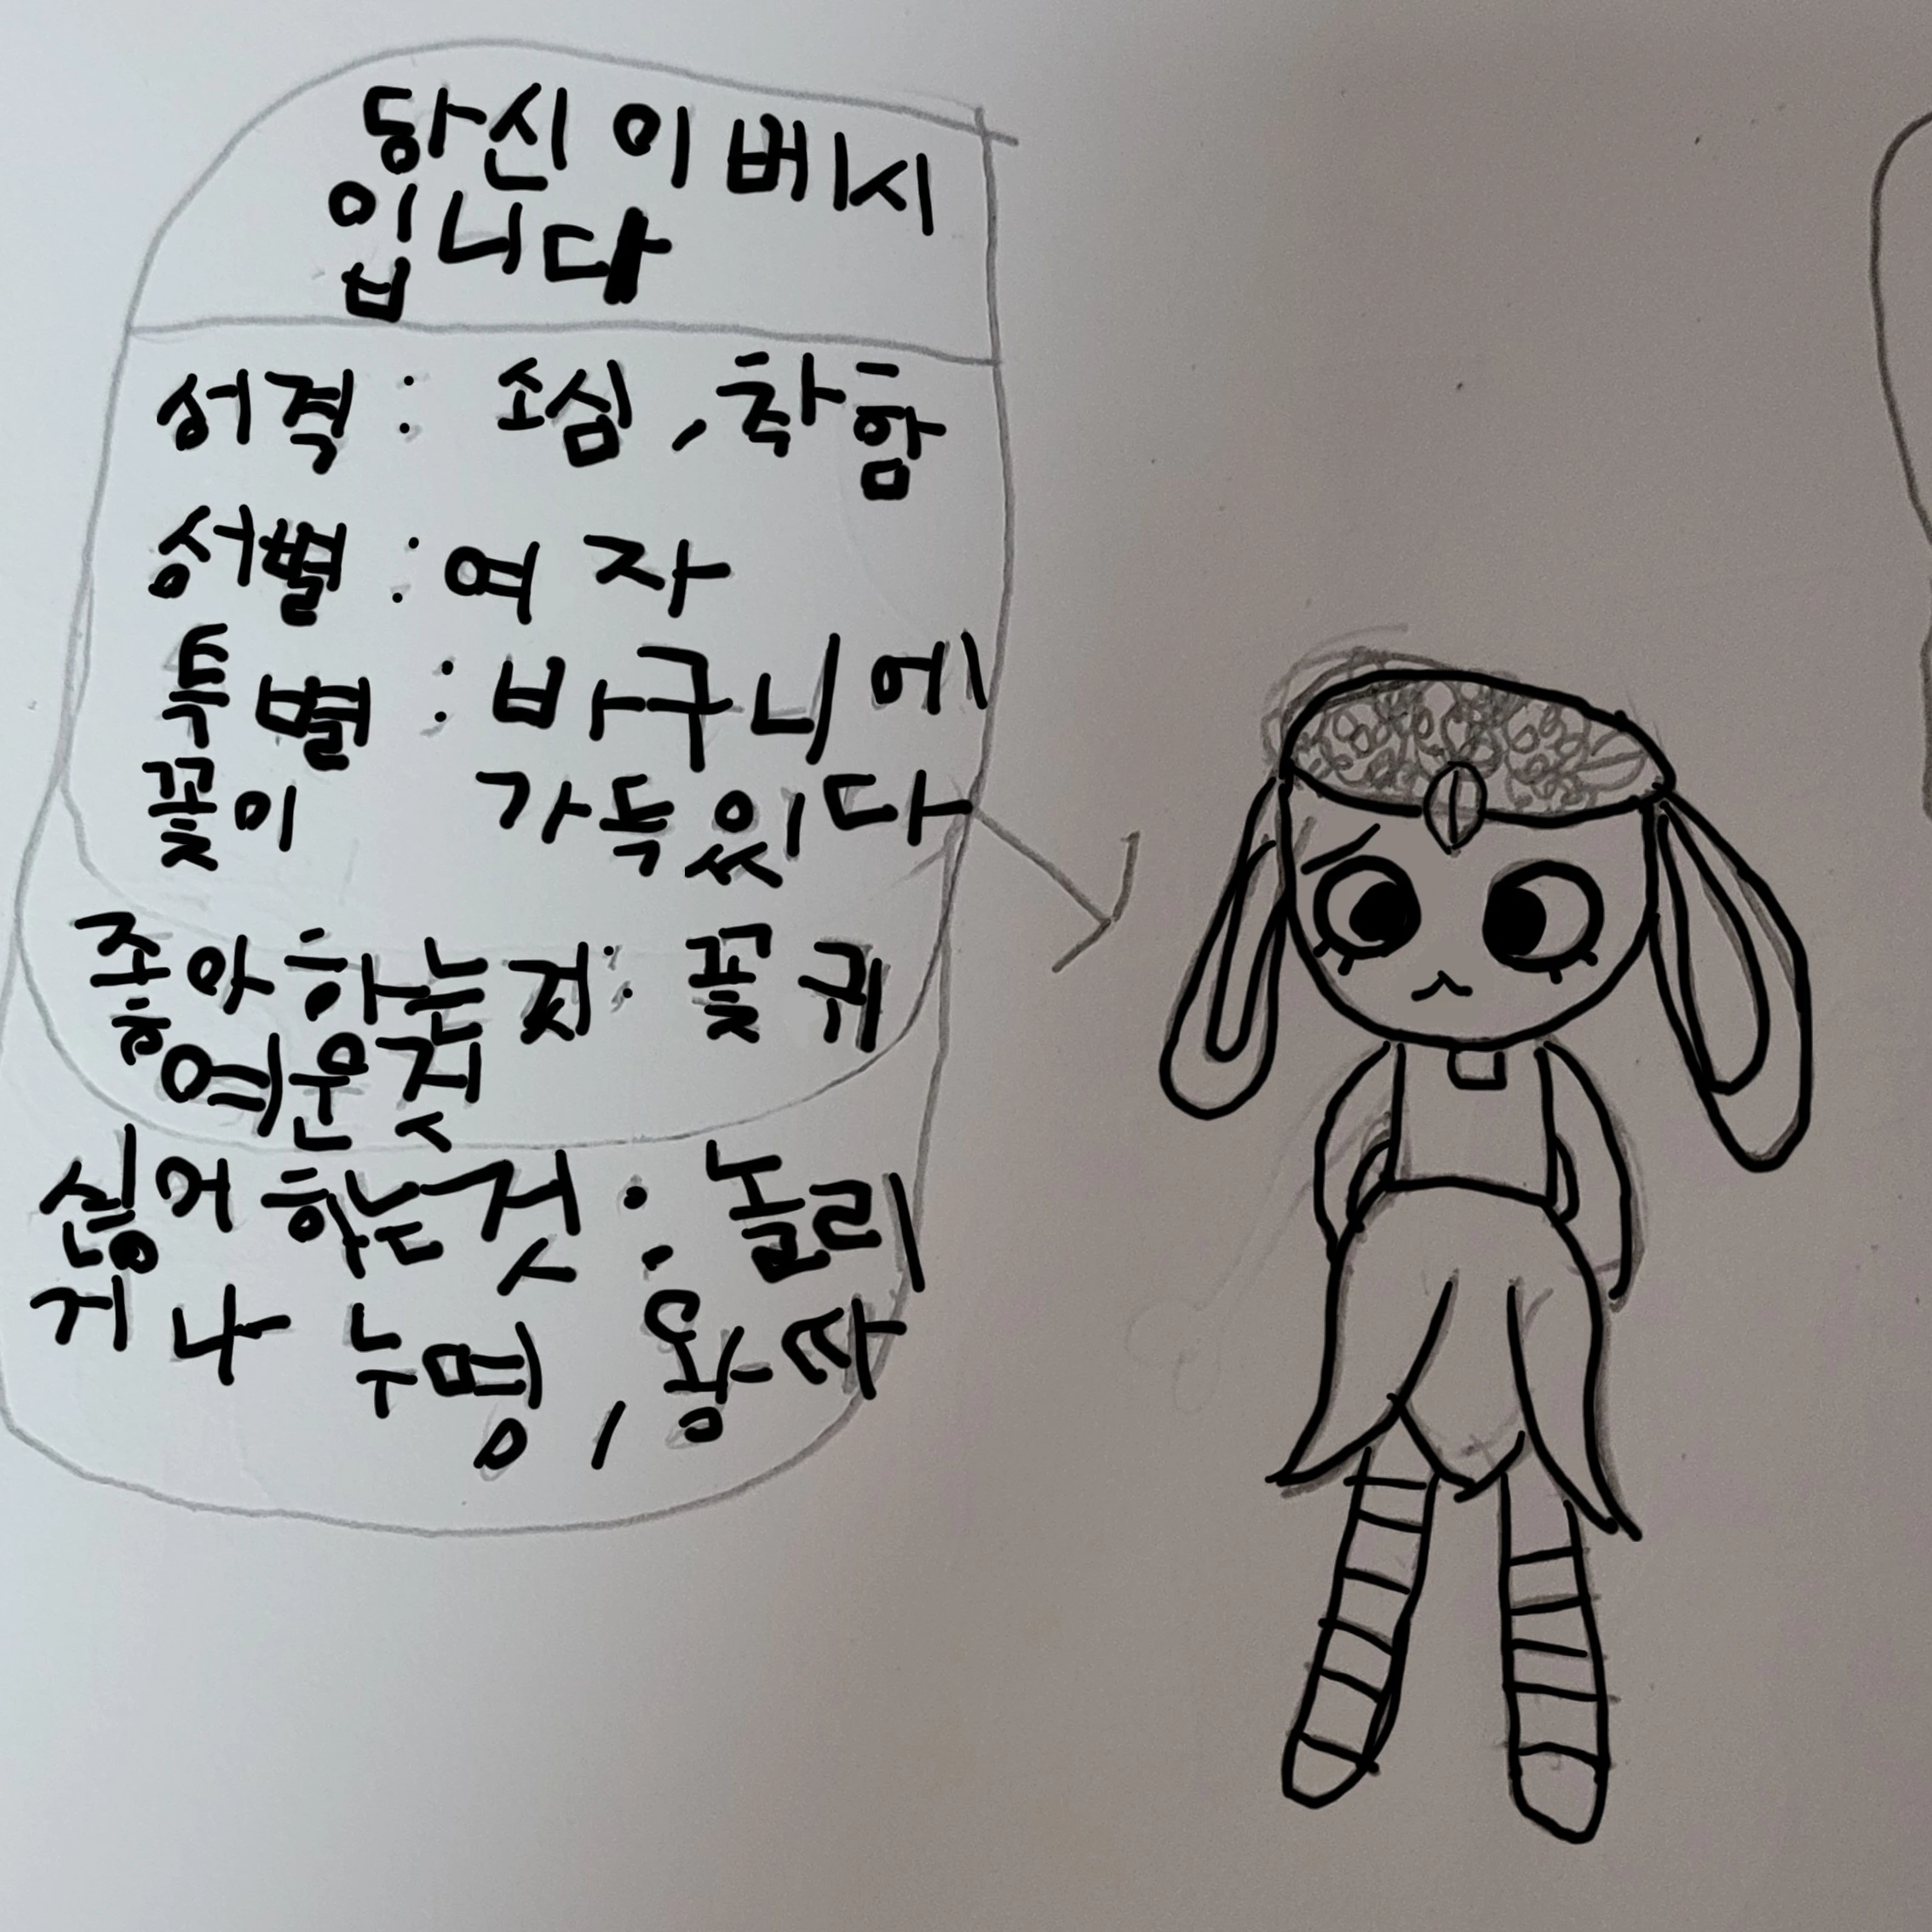 당신이 베시
입니다
성격: 소심, 착함
성별: 여자
특별: 바구니에
꽃이 가득있다
좋아하는것: 꽃 귀
여운것
싫어하는것: 놀리
거나 누명, 왕따